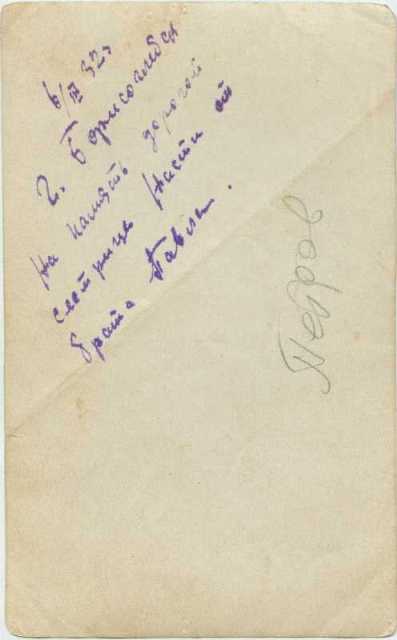 6/III 32г
г. Борисоглебск
На память дорогой
сестрице Насти от
брата Павла.
Петров